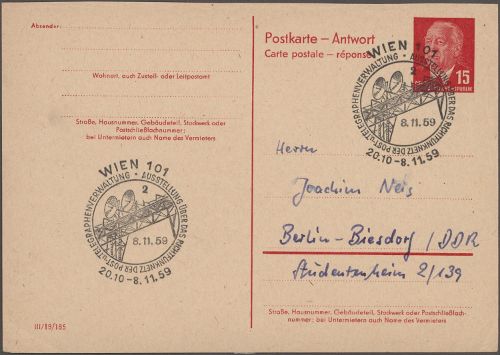 Absender:
Wohnort, auch Zustell- oder Leitpostamt
Straße, Hausnummer, Gebäudeteil, Stockwerk oder
Postschließfachnummer;
bei Untermietern auch Name des Vermieters
WIEN 101
AUSSTELLUNG ÜBER DAS RICHTFUNKNETZ DER POST- u. TELEGRAPHENVERWALTUNG
2
8.11.59
20.10-8.11.59
III/18/185
Postkarte – Antwort
Carte postale – réponse
15
WIEN 101
AUSSTELLUNG ÜBER DAS RICHTFUNKNETZ DER POST- u. TELEGRAPHENVERWALTUNG
2
8.11.59
20.10-8.11.59
Herrn
Joachim Neis
Berlin-Biesdorf / DDR
Studentenheim 2/139
Straße, Hausnummer, Gebäudeteil, Stockwerk oder Postschließfach-
nummer; bei Untermietern auch Name des Vermieters